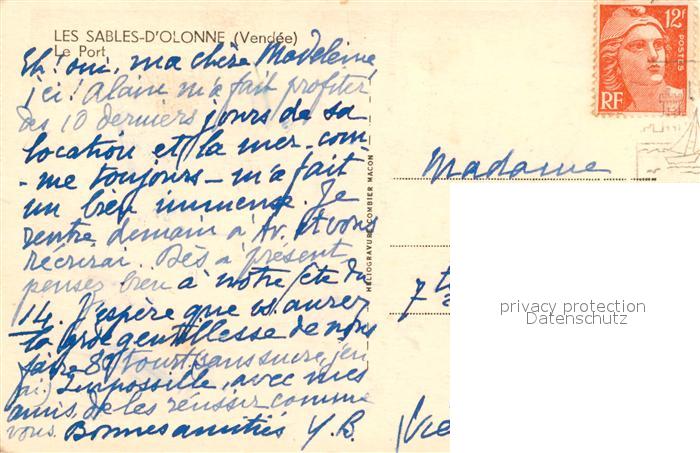 LES SABLES-D'OLONNE (Vendée)
Le Port
Eh! oui, ma chère Madeleine
ici! Alain m'a fait profiter
des 10 derniers jours de sa
location et la mer - com-
-me toujours - m'a fait
un bien immense. Je
rentre demain à Av. et vous
récrirai. Dès à présent
pensez bien à notre fête du
14. J'espère que vs. aurez
la gde gentillesse de nous
faire 8 (sans sucre, j'en
ai) Impossible, avec mes
amis, de les réussir comme
vous. Bonnes amitiés Y. B.
HÉLIOGRAVURE COMBIER MACON
12F
POSTES
RF
Madame
7
privacy protection
Datenschutz